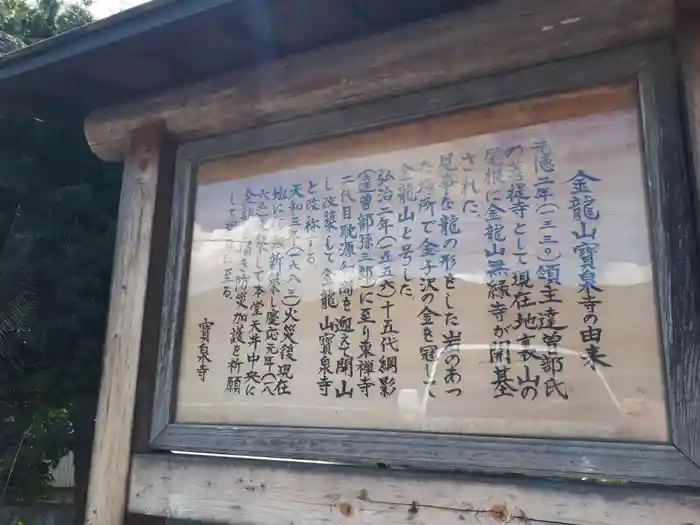 金龍山寶泉寺の由来
元徳二年(一三三〇)領主達曽部氏
の菩提寺として現在地裏山の
屋根に金龍山無縁寺が開基
された。
見事な龍の形をした岩のあっ
た場所で金子沢の金を冠して
金龍山と号した。
弘治二年(一五五六)十五代綱影
(達曽部孫三郎)に至り東禅寺
二代目耽源和尚を迎えて開山
し改築して金龍山寶泉寺
と改称する。
天和三年(一六八三)火災後現在
地に
慶応元年(一八
六五)
して本堂天井中央に
防災加護を祈願
して
至る。
寶泉寺